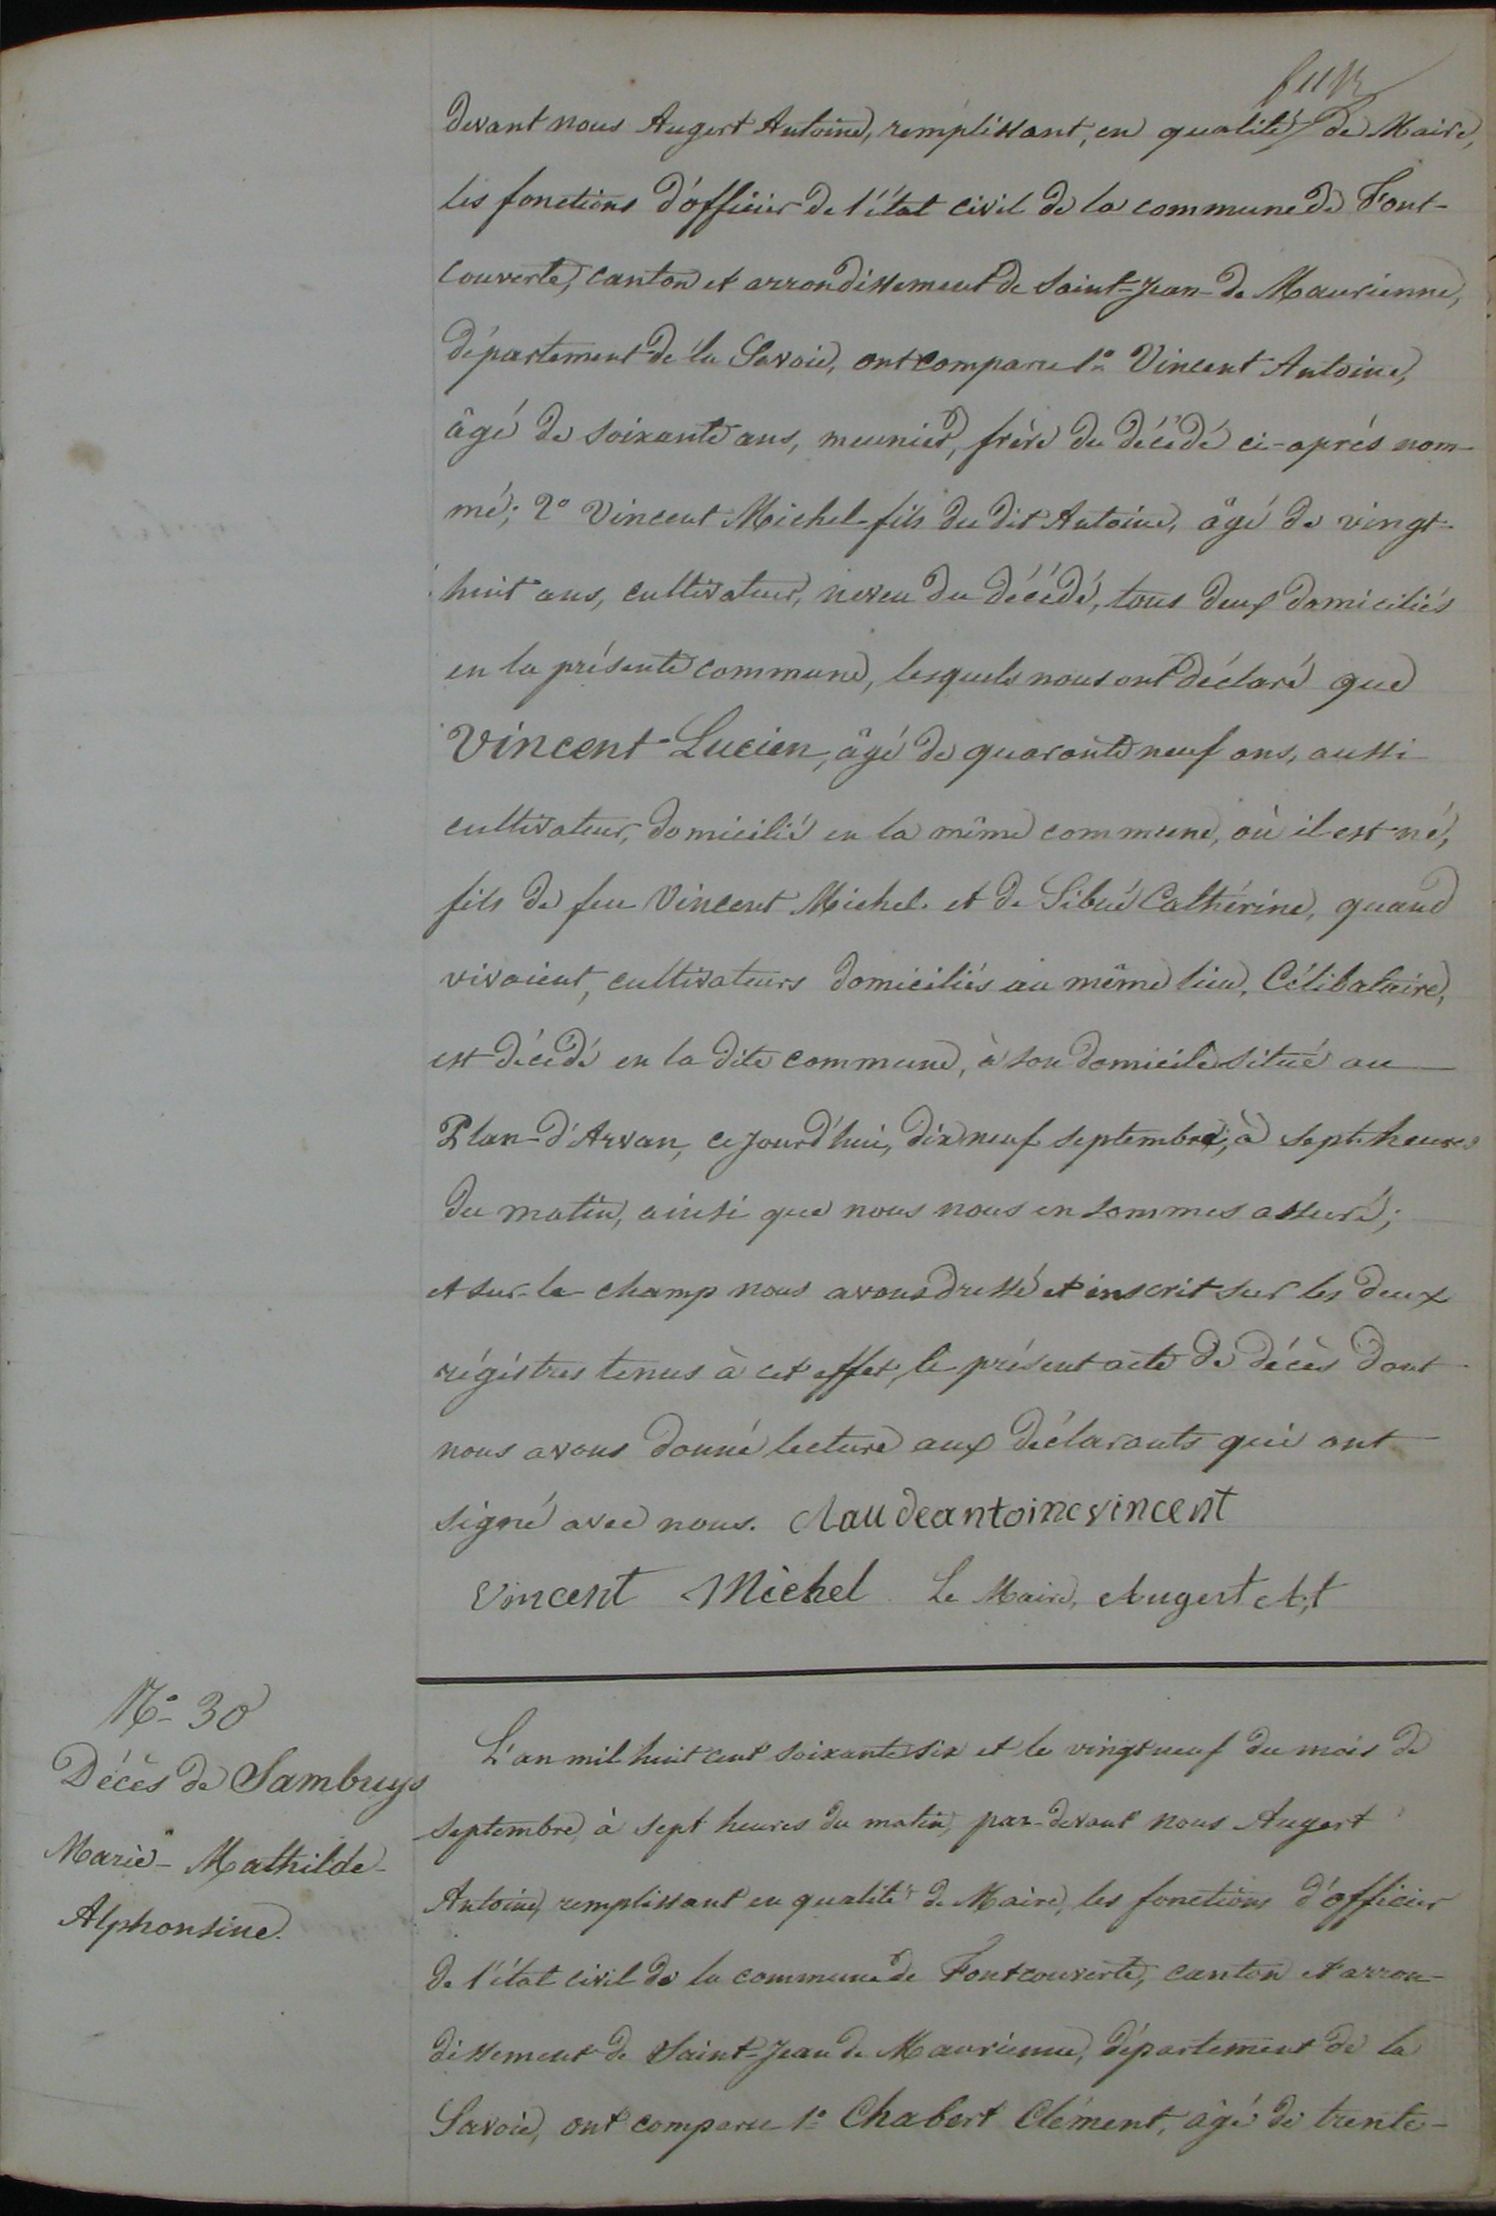 devant nous Augert Antoine, remplissant, en qualité de Maire,
les fonctions d'officier de l'état civil de la commune de Font-
couverte, canton et arrondissement de Saint-Jean-de Maurienne,
département de la Savoie, ont comparu 1° Vincent Antoine,
âgé de soixante ans, meunier, frère du décédé ci-après nom-
mé; 2° Vincent Michel fils du dit Antoine, âgé de vingt-
huit ans, cultivateur, neveu du décédé, tous deux domiciliés
en la présente commune, lesquels nous ont déclaré que
Vincent Lucien, âgé de quarante neuf ans, aussi
cultivateur, domicilié en la même commune, où il est né,
fils de feu Vincent Michel et de Sibué Cathérine, quand
vivaient, cultivateurs domiciliés au même lieu, Célibataire,
est décédé en la dite commune, à son domicile situé au
Plan-d'Arvan, ce jourd'hui, dix neuf septembre, à sept heures
du matin, ainsi que nous nous en sommes assuré;
et sur-le-champ nous avons dressé et inscrit sur les deux
régistres tenus à cet effet, le présent acte de décès dont
nous avons donné lecture aux déclarants qui ont
signé avec nous. Claudeantoinevincent
Vincent Michel Le Maire, Augert At
N° 30
Décès de Sambuys
Marie-Mathilde-
Alphonsine.
L'an mil huit cent soixante six et le vingt neuf du mois de
septembre, à sept heures du matin, par-devant nous Augert
Antoine, remplissant en qualité de Maire, les fonctions d'officier
de l'état civil de la commune de Fontcouverte, canton et arron-
dissement de Saint-Jean de Maurienne, département de la
Savoie, ont comparu 1° Chabert Clément, âgé de trente-